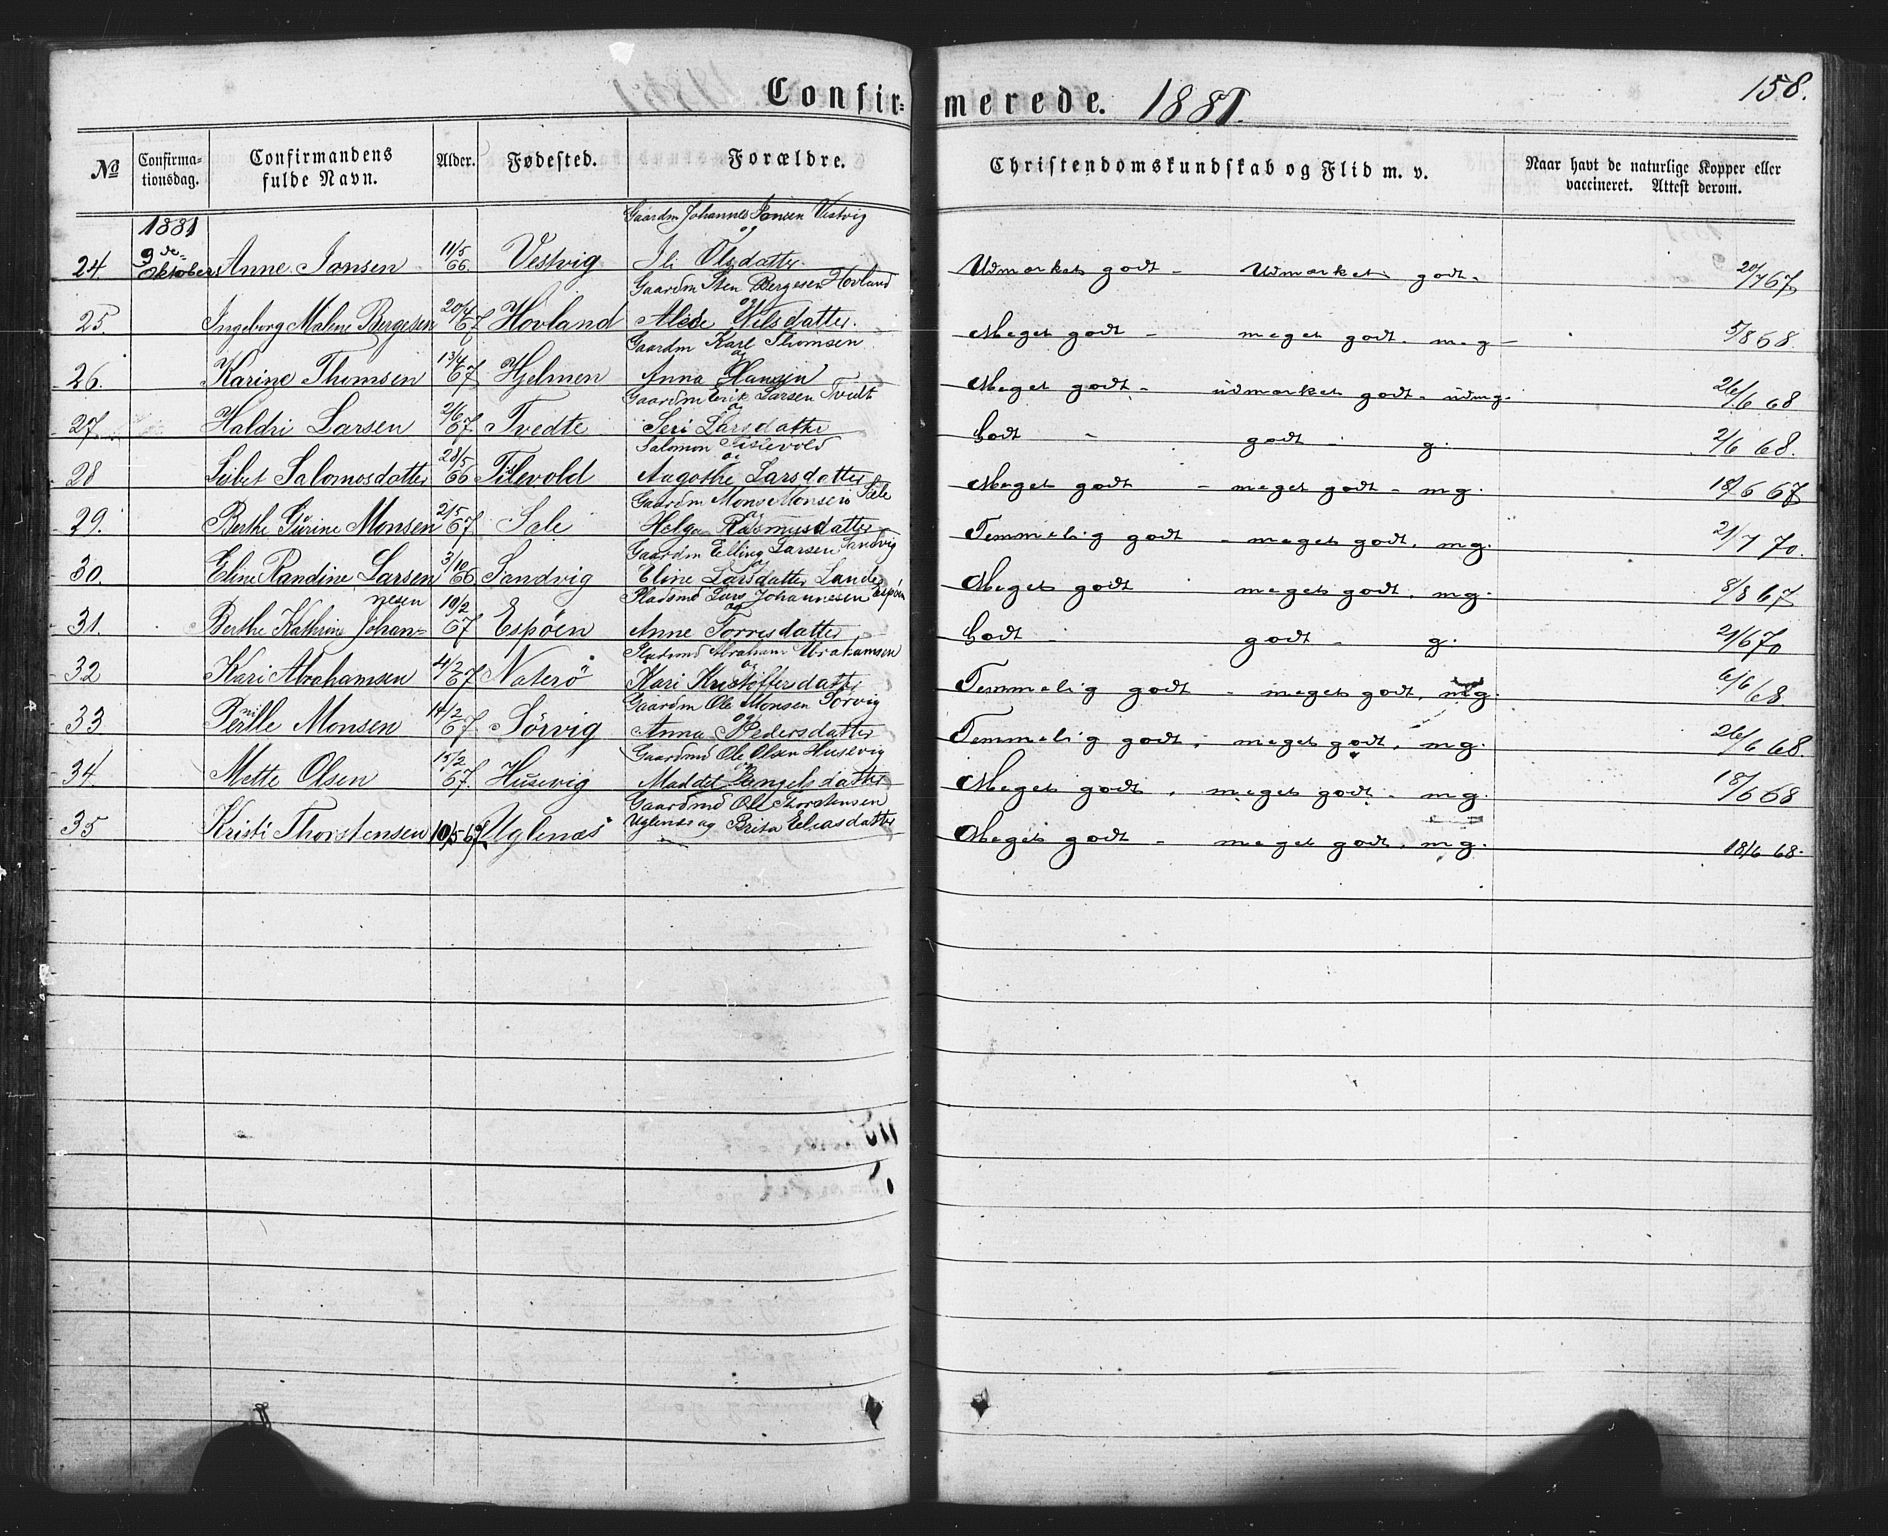 Confir=merede. 1881. 158.
No Confirma-tionsdag. Confirmandens fulde Navn. Alder. Fødested. Forældre. Christendomskundskab og Flid m. v. Naar havt de naturlige Kopper eller vaccineret. Attest derom.
1881 Gaardm Johannes Jansen Vestvig
og
24. 9de Oktober Anne Jansen 11/5 66. Vestvig Olsdatter. Udmærket godt - Udmærket godt. 20/7 67
Gaardm Sten Bergesen Hovland
og
25. Ingeborg Malene Bergesen 20/4 67 Hovland Alede Nilsdatter. Meget godt - meget godt. m g - 5/8 68.
Gaardm Karl Thomsen
og
26. Karine Thomsen 13/4 67 Hjelmen Anna Hansen Meget godt - udmærket godt - udm g. 26/6 68
Gaardm Erik Larsen Tvedt
og
27. Haldri Larsen 2/6 67 Tvedte Seri Larsdatter Godt - godt - g. 2/6 68.
Salomon Tislevold
og
28 Salomosdatter 28/5 66 Tislevold Aagothe Larsdatter Meget godt - meget godt - m g. 18/6 67
Gaardm Mons Monsen Sæle
og
29. Berthe Gurine Monsen 2/5 67 Sæle Helga Rasmusdatter Temmelig godt - meget godt. m g. 21/7 70.
Gaardm Elling Larsen Sandvig
og
30. Eline Randine Larsen 3/10 66 Sandvig Eline Larsdatter Lande Meget godt meget godt. m g. 8/8 67
Pladsmd Lars Johannesen Espöen
nesen og
31. Berthe Kathrine Johan= 10/2 67 Espöen Anne Torresdatter Godt - godt - g. 21/6 70
Pladsmd Abraham Abrahamsen
og
32 Kari Abrahamsen 4/2 67 Naterö Kari Kristoffersdatter Temmelig godt - meget godt, m g. 6/6 68
Gaardm Ole Monsen Sörvig
og
33 Pernille Monsen 14/2 67 Sörvig Anna Pedersdatter Temmelig godt, meget godt, m g. 26/6 68.
Gaardmd Ole Olsen Husevig
og
34. Mette Olsen 15/2 67. Husevig Maddel Engelsdatter Meget godt, meget godt - m g. 18/6 68
Gaardmd Ole Thorstensen
35 Kristi Thorstensen 10/5 67 Uglenæs Uglenæs og Brita Eliasdatter Meget godt - meget godt. m g. 18/6 68.